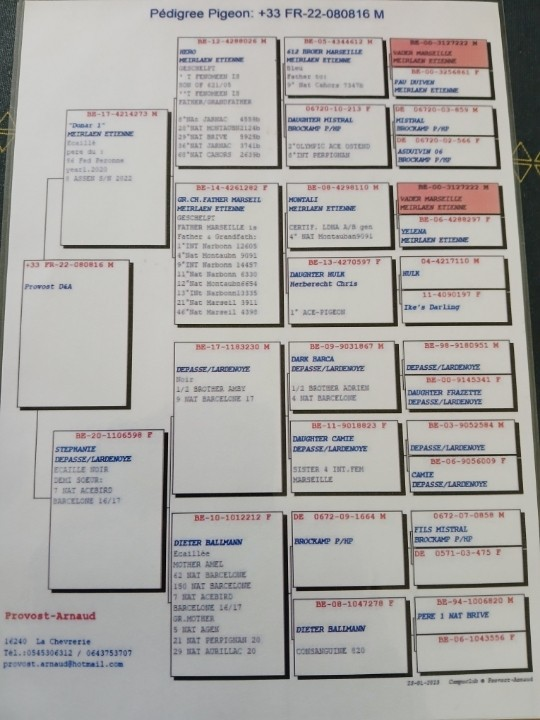 Pédigree Pigeon: +33 FR-22-080816 M
+33 FR-22-080816 M
Provost D&A
BE-17-4214273 M
"Donar 1"
MEIRLAEN ETIENNE
Ecaillé
pere du :
96 Fed Peronne
yearl.2020
BE-20-1106598 F
STEPHANIE
DEPASSE/LARDENOYE
ECAILLE NOIR
DEMI SOEUR:
7 NAT ACEBIRD
BARCELONE 16/17
BE-12-4288026 M
HERO
MEIRLAEN ETIENNE
GESCHELPT
FATHER/GRANDFATHER
BE-14-4261282 F
GR.CH.FATHER MARSEIL
MEIRLAEN ETIENNE
GESCHELPT
FATHER MARSEILLE is
Father & Grandfath:
1°INT Narbonn 12605
4°Nat Montaubn 9091
9°INT Narbonn 14457
11°Nat Narbonn 6330
13°INt Narbonn13335
21°Nat Marseil 3911
46°Nat Marseil 4395
BE-17-1183230 M
DEPASSE/LARDENOYE
Noir
1/2 BROTHER AMBY
9 NAT BARCELONE 17
BE-10-1012212 F
DIETER BALLMANN
Ecaillée
MOTHER AMEL
62 NAT BARCELONE
150 NAT BARCELONE
7 NAT ACEBIRD
BARCELONE 16/17
GR.MOTHER
5 NAT AGEN
21 NAT PERPIGNAN 20
29 NAT AURILLAC 20
BE-05-4344612 M
612 BROER MARSEILLE
MEIRLAEN ETIENNE
Bleu
Father to:
9° Nat Cahors 7367b
06720-10-213 F
DAUGHTER MISTRAL
BROCKAMP P/HP
2°OLYMPIC ACE OSTEND
8°INT PERPIGNAN
BE-08-4298110 M
MONTALI
MEIRLAEN ETIENNE
CERTIF. LDNA A/B gen
4° NAT Montauban9091
BE-13-4270597 F
DAUGHTER HULK
Herberecht Chris
1° ACE-PIGEON
BE-09-9031867 M
DARK BARCA
DEPASSE/LARDENOYE
1/2 BROTHER ADRIEN
4 NAT BARCELONE
BE-11-9018823 F
DAUGHTER CAMIE
DEPASSE/LARDENOYE
SISTER 4 INT.FEM
MARSEILLE
DE 0672-09-1664 M
BROCKAMP P/HP
BE-08-1047278 F
DIETER BALLMANN
CONSANGUINE 820
BE-00-3127222 M
VADER MARSEILLE
MEIRLAEN ETIENNE
BE-00-3256861 F
FAU DUIVEN
MEIRLAEN ETIENNE
DE 06720-03-659 M
MISTRAL
BROCKAMP P/HP
DE 06720-02-566 F
ASDUIVIN 06
BROCKAMP P/HP
BE-00-3127222 M
VADER MARSEILLE
MEIRLAEN ETIENNE
BE-06-4288297 F
YELENA
MEIRLAEN ETIENNE
04-4217110 M
HULK
11-4090197 F
Ike's Darling
BE-98-9180951 M
DEPASSE/LARDENOYE
BE-00-9145341 F
DAUGHTER FRAIETTE
DEPASSE/LARDENOYE
BE-03-9052584 M
DEPASSE/LARDENOYE
BE-06-9056009 F
CAMIE
DEPASSE/LARDENOYE
0672-07-0858 M
FILS MISTRAL
BROCKAMP P/HP
DE 0571-03-475 F
BE-94-1006820 M
PERE 1 NAT BRIVE
BE-06-1043556 F
Provost-Arnaud
16240 La Chevrerie
Tél.:0545306312 / 0643753707
provost.arnaud@hotmail.com
Compuclub © Provost-Arnaud